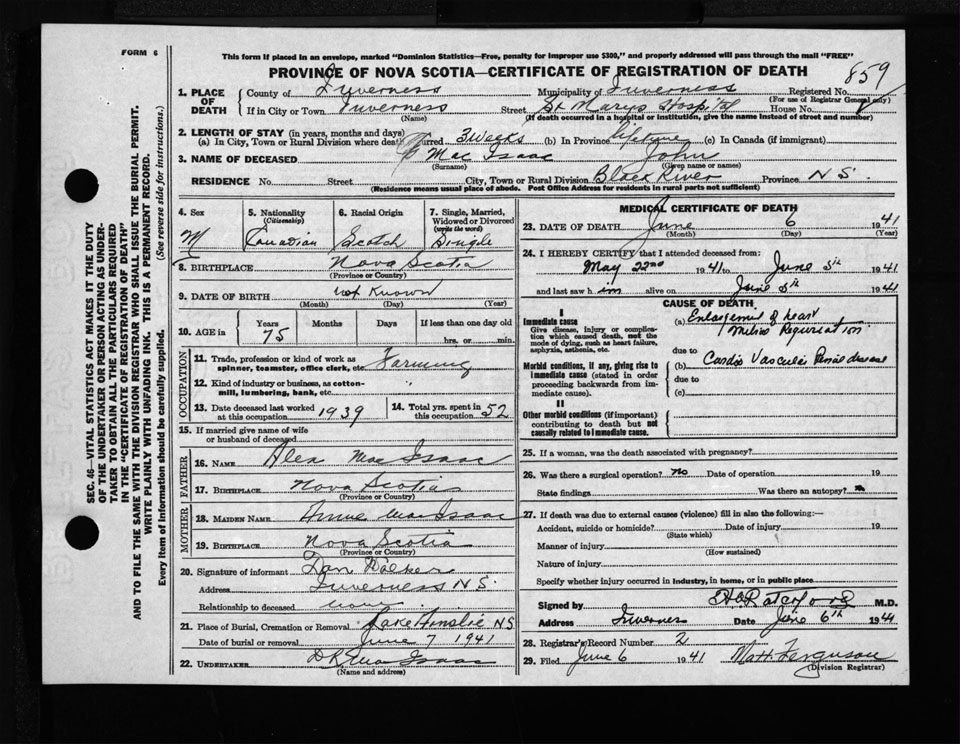 FORM 6
SEC. 46—VITAL STATISTICS ACT MAKES IT THE DUTY
OF THE UNDERTAKER OR PERSON ACTING AS UNDER-
TAKER TO OBTAIN ALL THE PARTICULARS REQUIRED
IN THE "CERTIFICATE OF REGISTRATION OF DEATH"
AND TO FILE THE SAME WITH THE DIVISION REGISTRAR WHO SHALL ISSUE THE BURIAL PERMIT.
WRITE PLAINLY WITH UNFADING INK. THIS IS A PERMANENT RECORD.
Every item of information should be carefully supplied. (See reverse side for instructions.)
This form if placed in an envelope, marked "Dominion Statistics—Free, penalty for improper use $300," and properly addressed will pass through the mail "FREE"
PROVINCE OF NOVA SCOTIA—CERTIFICATE OF REGISTRATION OF DEATH
859
1. PLACE OF DEATH County of Inverness Municipality of Inverness Registered No.
(For use of Registrar General only)
If in City or Town Inverness Street St Marys Hospital House No.
(Name) (If death occurred in a hospital or institution, give the name instead of street and number)
2. LENGTH OF STAY (in years, months and days)
(a) In City, Town or Rural Division where death occurred 3 Weeks (b) In Province Lifetime (c) In Canada (if immigrant)
3. NAME OF DECEASED Mac Isaac John
(Surname) (Given name or names)
RESIDENCE No. Street City, Town or Rural Division Black River Province N S.
(Residence means usual place of abode. Post Office Address for residents in rural parts not sufficient)
4. Sex M
5. Nationality (Citizenship) Canadian
6. Racial Origin Scotch
7. Single, Married, Widowed or Divorced (write the word) Single
8. BIRTHPLACE Nova Scotia
(Province or Country)
9. DATE OF BIRTH not Known
(Month) (Day) (Year)
10. AGE in Years Months Days If less than one day old
75 hrs. or min.
OCCUPATION
11. Trade, profession or kind of work as spinner, teamster, office clerk, etc. Farming
12. Kind of industry or business, as cotton-mill, lumbering, bank, etc.
13. Date deceased last worked at this occupation 1939
14. Total yrs. spent in this occupation 52
15. If married give name of wife or husband of deceased
FATHER
16. NAME Alex Mac Isaac
17. BIRTHPLACE Nova Scotia
(Province or Country)
MOTHER
18. MAIDEN NAME Annie MacIsaac
19. BIRTHPLACE Nova Scotia
(Province or Country)
20. Signature of informant Dan Walker
Address Inverness N S.
Relationship to deceased none
21. Place of Burial, Cremation or Removal Lake Ainslie NS
Date of burial or removal June 7 1941
22. UNDERTAKER MacIsaac
(Name and address)
MEDICAL CERTIFICATE OF DEATH
23. DATE OF DEATH June 6 1941
(Month) (Day) (Year)
24. I HEREBY CERTIFY that I attended deceased from:
May 22nd 1941 to June 5th 1941
and last saw him alive on June 5th 1941
CAUSE OF DEATH
I
Immediate cause
Give disease, injury or complication which caused death, not the mode of dying, such as heart failure, asphyxia, asthenia, etc.
(a) Enlargement of heart
Mitral Regurgitation
due to
Morbid conditions, if any, giving rise to immediate cause (stated in order proceeding backwards from immediate cause).
(b) Cardio Vascular Renal disease
due to
(c)
II
Other morbid conditions (if important) contributing to death but not causally related to immediate cause.
25. If a woman, was the death associated with pregnancy?
26. Was there a surgical operation? No Date of operation 19
State findings Was there an autopsy?
27. If death was due to external causes (violence) fill in also the following:—
Accident, suicide or homicide? Date of injury 19
(State which)
Manner of injury
(How sustained)
Nature of injury
Specify whether injury occurred in industry, in home, or in public place
Signed by Ratchford M.D.
Address Inverness Date June 6th 1941
28. Registrar's Record Number 2
29. Filed June 6 1941 Matt. Ferguson
(Division Registrar)